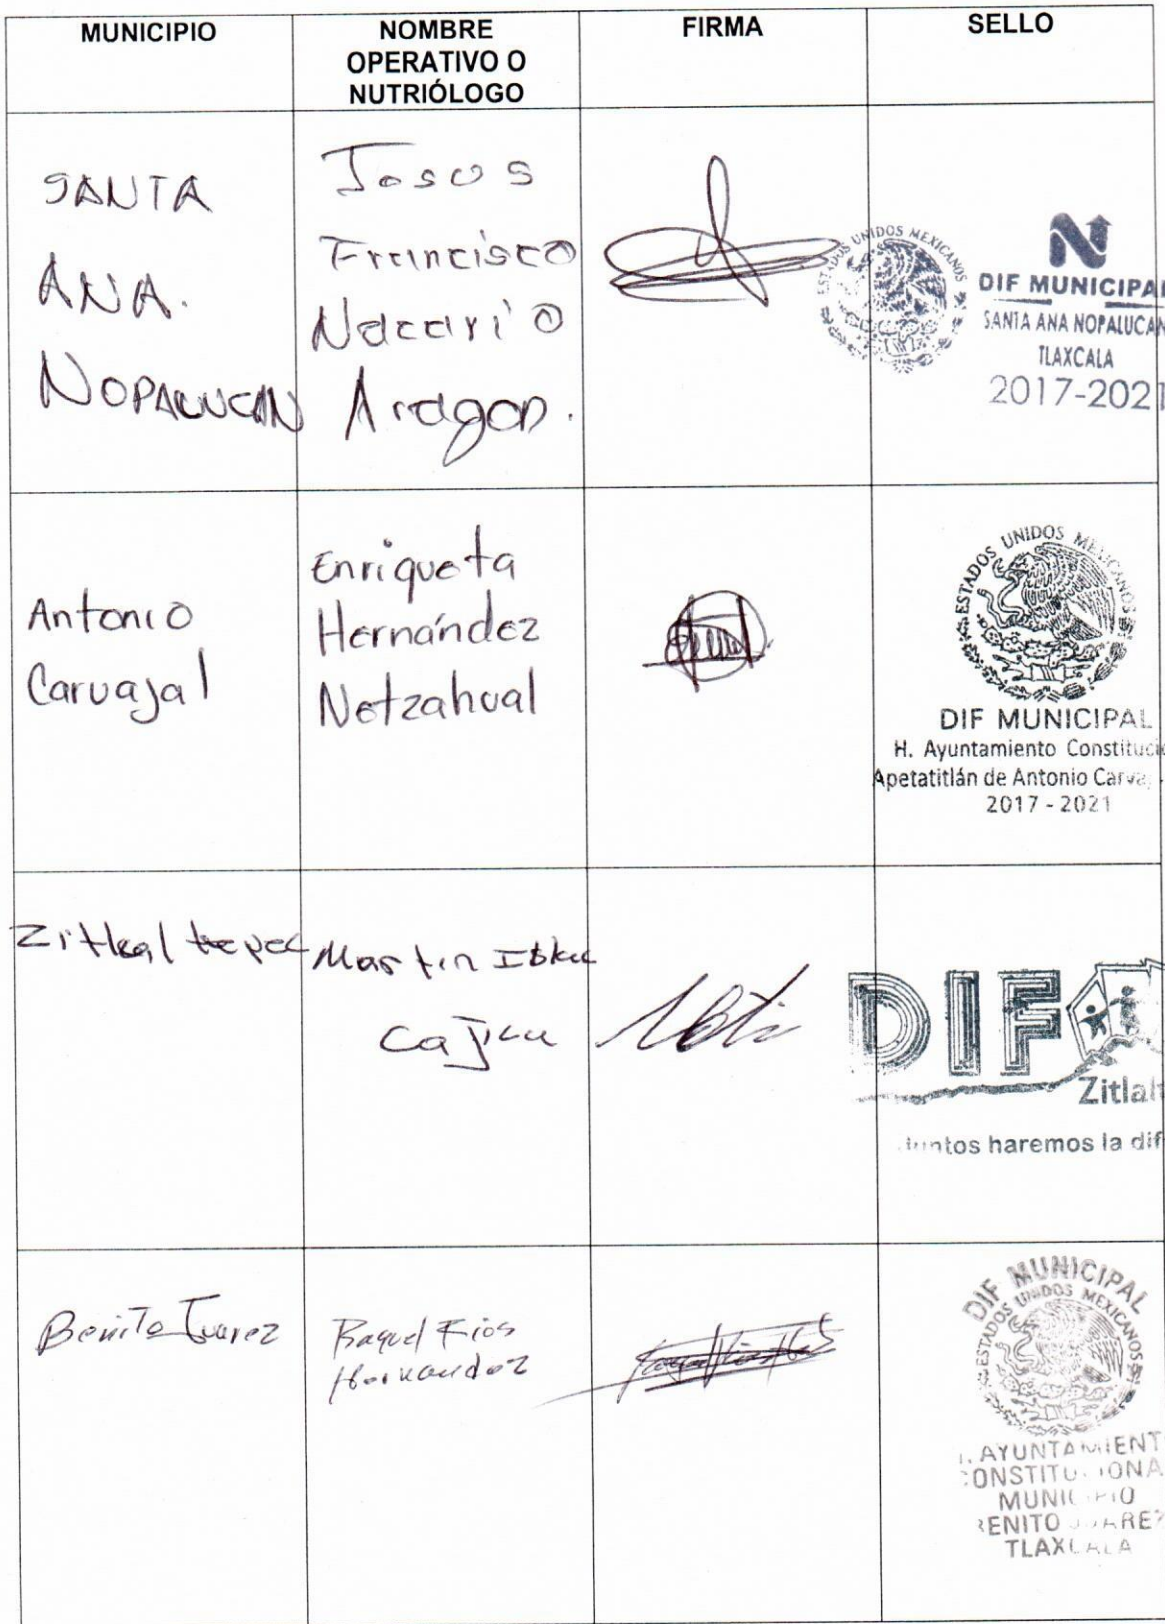 MUNICIPIO
NOMBRE
OPERATIVO O
NUTRIÓLOGO
FIRMA
SELLO
SANTA
ANA.
NOPALUCAN
Jesus
Francisco
Nacario
Aragon.
ESTADOS UNIDOS MEXICANOS
DIF MUNICIPAL
SANTA ANA NOPALUCAN
TLAXCALA
2017-2021
Antonio
Carvajal
Enriqueta
Hernández
Netzahual
ESTADOS UNIDOS MEXICANOS
DIF MUNICIPAL
H. Ayuntamiento Constitucio
Apetatitlán de Antonio Carvaj
2017 - 2021
Zitlaltepec
Martin
Cajica
DIF
Zitlalt
Juntos haremos la dif
Benito Juarez
Raquel Rios
Hernandez
DIF MUNICIPAL
ESTADOS UNIDOS MEXICANOS
H. AYUNTAMIENT
CONSTITUCIONA
MUNICIPIO
BENITO JUAREZ
TLAXCALA